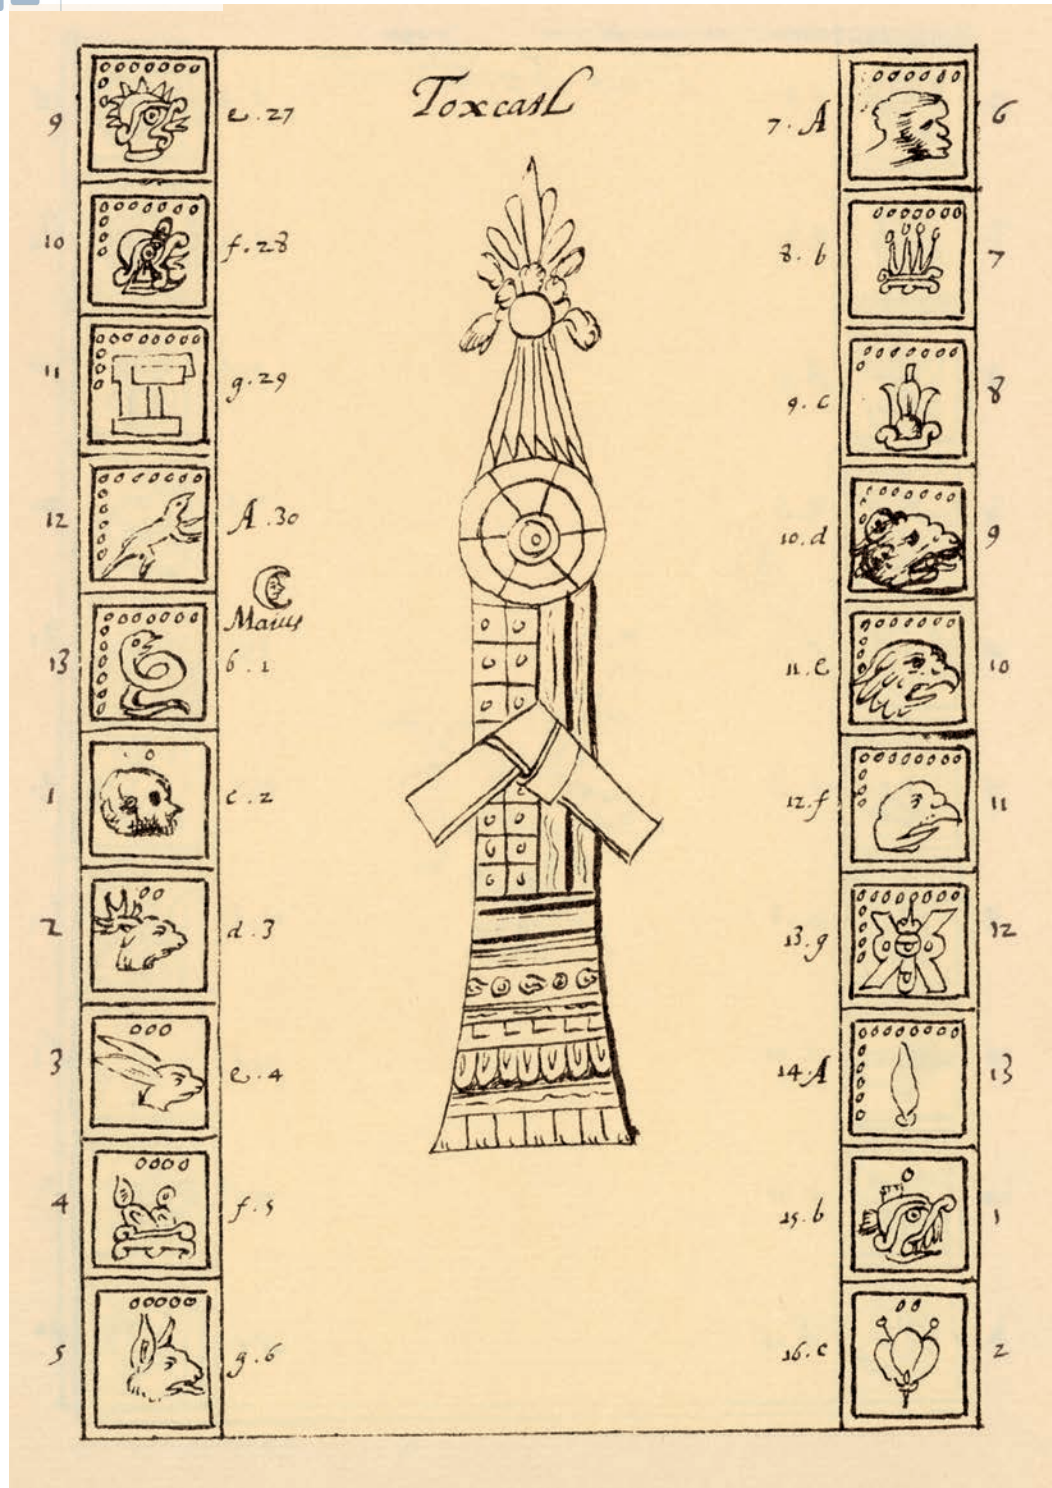 Toxcatl
9
e.27
10
f.28
11
g.29
12
A.30
Maius
13
b.1
1
c.2
2
d.3
3
e.4
4
f.5
5
g.6
7.A
6
8.b
7
9.c
8
10.d
9
11.e
10
12.f
11
13.g
12
14.A
13
15.b
1
16.c
2